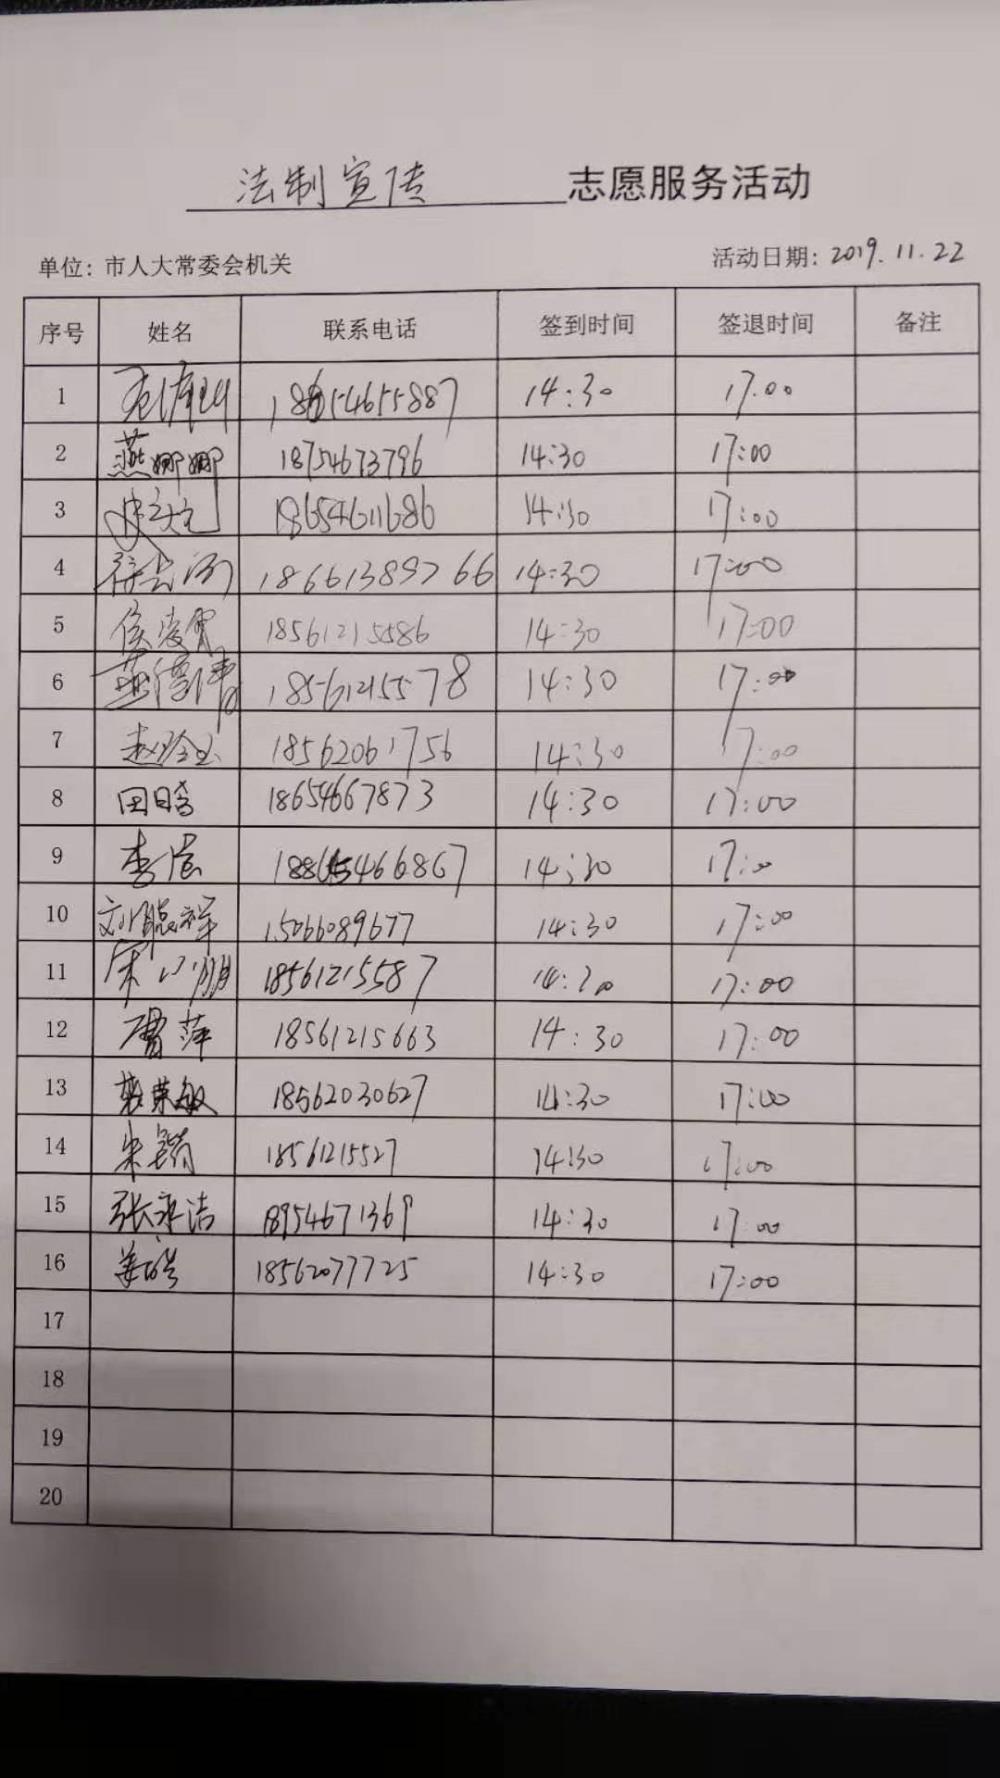 法制宣传 志愿服务活动
单位：市人大常委会机关 活动日期：2019.11.22
序号 姓名 联系电话 签到时间 签退时间 备注
1 18654655887 14:30 17:00
2 燕娜娜 18754673796 14:30 17:00
3 18654611686 14:30 17:00
4 18661389766 14:30 17:00
5 侯凌霄 18561215586 14:30 17:00
6 18561215578 14:30 17:00
7 18562061756 14:30 17:00
8 18654667873 14:30 17:00
9 14:30 17:00
10 刘聪祥 15066089677 14:30 17:00
11 18561215587 14:30 17:00
12 曹萍 18561215663 14:30 17:00
13 18562030627 14:30 17:00
14 18561215527 14:30 17:00
15 张永洁 18954671369 14:30 17:00
16 18562077725 14:30 17:00
17
18
19
20